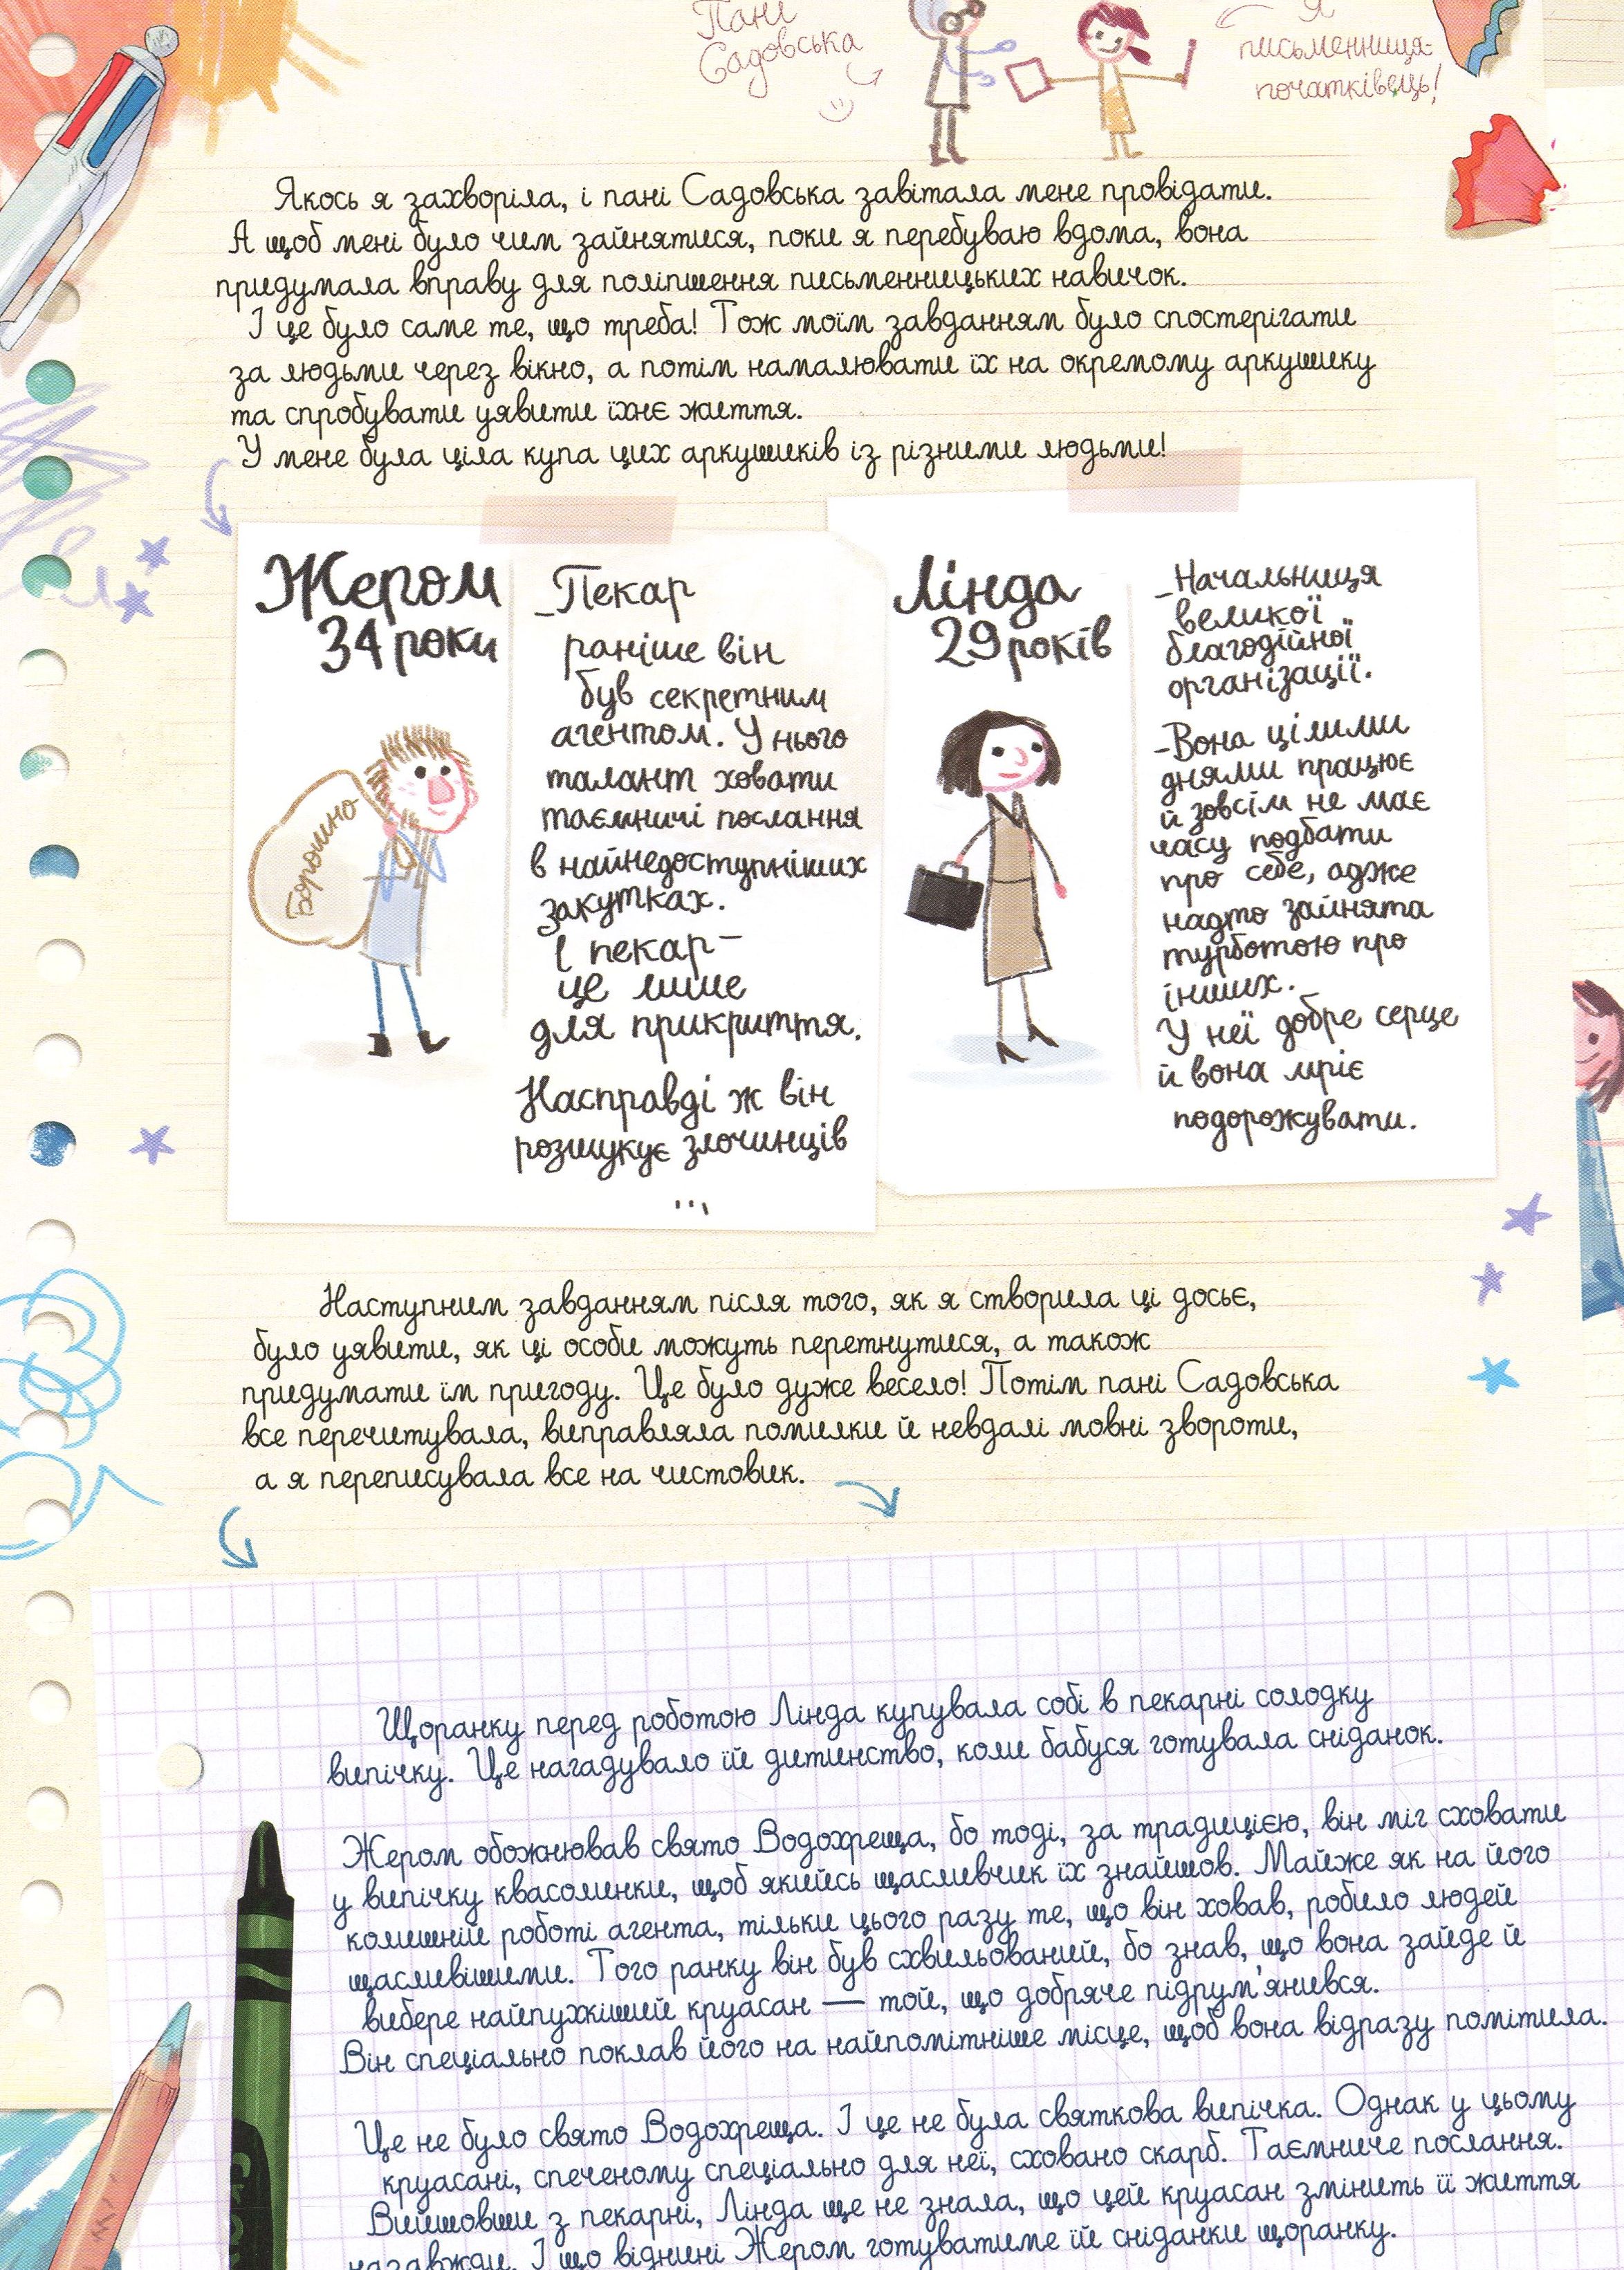 Пані
Садовська
Я
письменниця-
початківець!
Якось я захворіла, і пані Садовська завітала мене провідати.
А щоб мені було чим зайнятися, поки я перебуваю вдома, вона
придумала вправу для поліпшення письменницьких навичок.
І це було саме те, що треба! Тож моїм завданням було спостерігати
за людьми через вікно, а потім намалювати їх на окремому аркушику
та спробувати уявити їхнє життя.
У мене була ціла купа цих аркушиків із різними людьми!
Жером
34 роки
Борошно
_Пекар
раніше він
був секретним
агентом. У нього
талант ховати
таємничі послання
в найнедоступніших
закутках.
І пекар –
це лише
для прикриття.
Насправді ж він
розшукує злочинців
...
Лінда
29 років
_Начальниця
великої
благодійної
організації.
-Вона цілими
днями працює
й зовсім не має
часу подбати
про себе, адже
надто зайнята
турботою про
інших.
У неї добре серце
й вона мріє
подорожувати.
Наступним завданням після того, як я створила ці досьє,
було уявити, як ці особи можуть перетнутися, а також
придумати їм пригоду. Це було дуже весело! Потім пані Садовська
все перечитувала, виправляла помилки й невдалі мовні звороти,
а я переписувала все на чистовик.
Щоранку перед роботою Лінда купувала собі в пекарні солодку
випічку. Це нагадувало їй дитинство, коли бабуся готувала сніданок.
Жером обожнював свято Водохреща, бо тоді, за традицією, він міг сховати
у випічку квасолинки, щоб якийсь щасливчик їх знайшов. Майже як на його
колишній роботі агента, тільки цього разу те, що він ховав, робило людей
щасливішими. Того ранку він був схвильований, бо знав, що вона зайде й
вибере найпухкіший круасан — той, що добряче підрум'янився.
Він спеціально поклав його на найпомітніше місце, щоб вона відразу помітила.
Це не було свято Водохреща. І це не була святкова випічка. Однак у цьому
круасані, спеченому спеціально для неї, сховано скарб. Таємниче послання.
Вийшовши з пекарні, Лінда ще не знала, що цей круасан змінить її життя
назавжди. І що віднині Жером готуватиме їй сніданки щоранку.